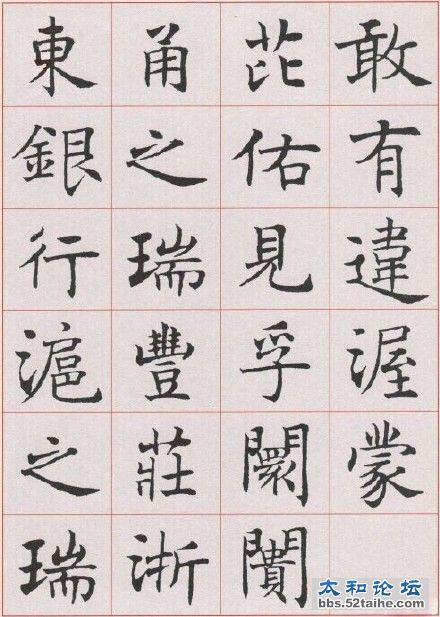 敢有違渥蒙
芘佑見孚闤闠
甬之瑞豐莊浙
東銀行滬之瑞
太和论坛
bbs.52taihe.com